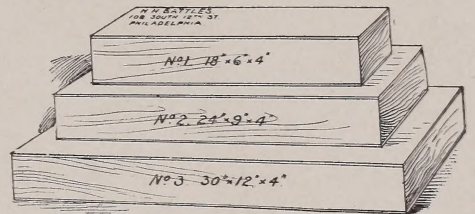 H H BATTLES
108 SOUTH 12TH ST.
PHILADELPHIA
No 1 18"x6"x4"
No 2. 24"x9"x4"
No 3 30"x12"x4"